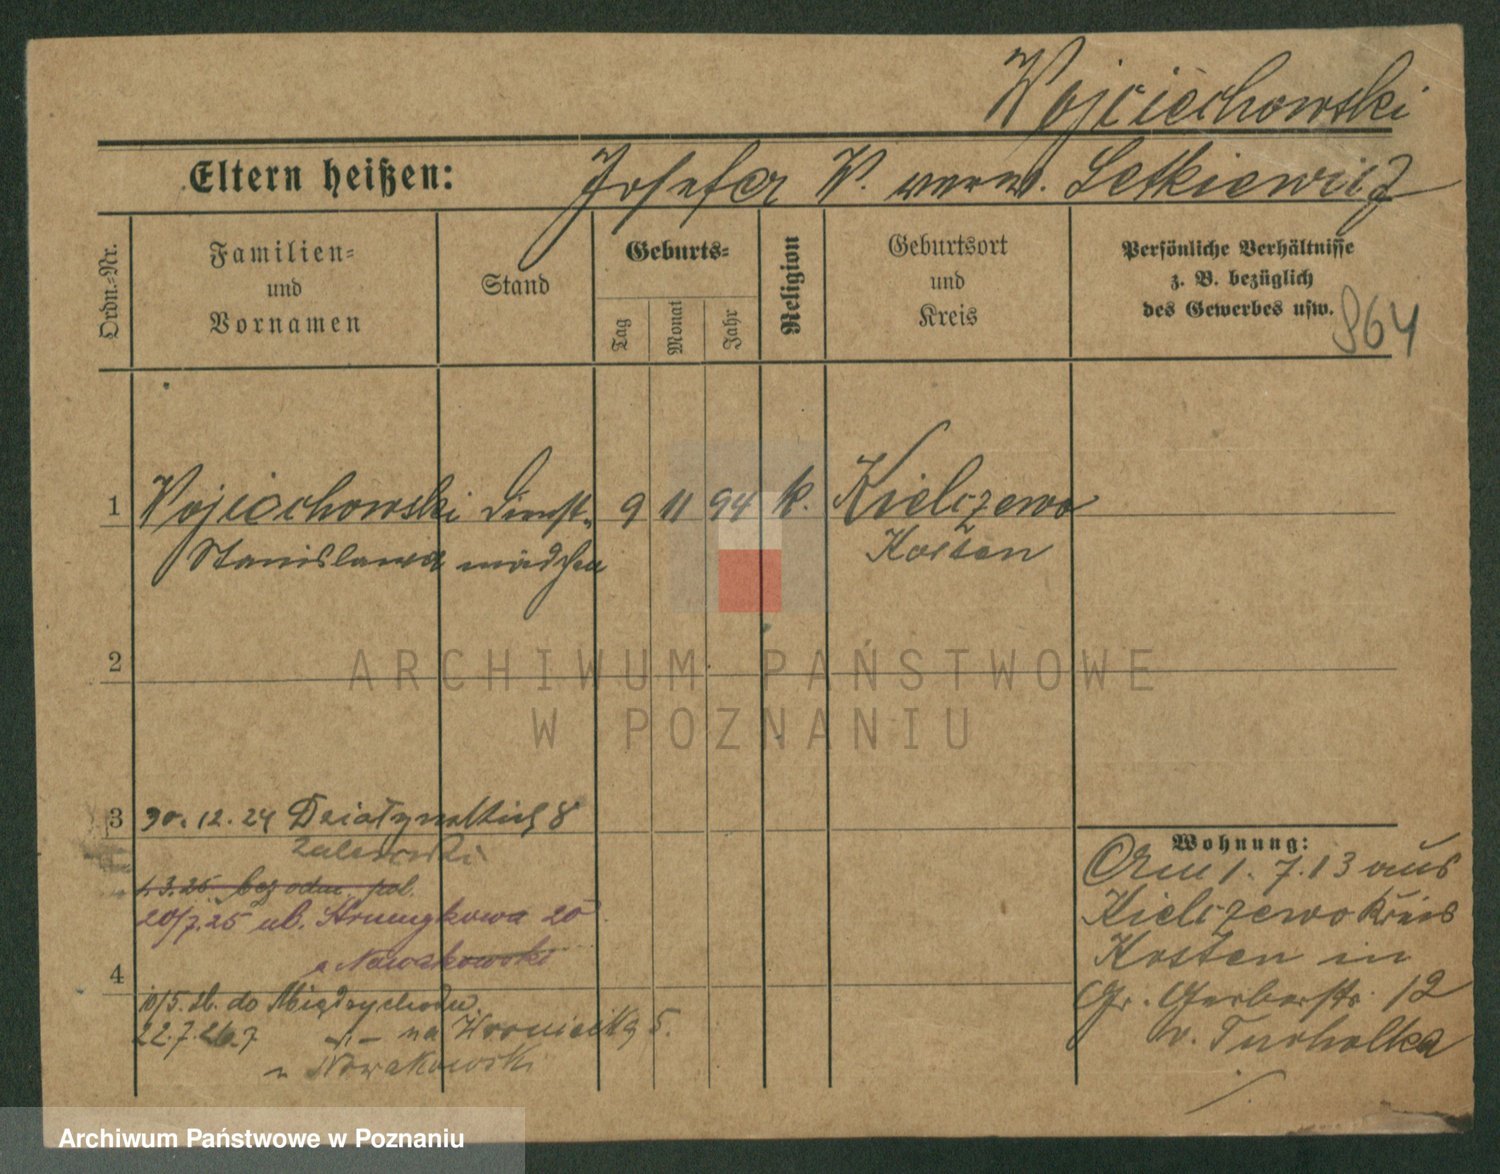 Wojciechowski
Eltern heißen: Josefa W. verw. Letkiewicz
Ordn.-Nr.
Familien-
und
Vornamen
Stand
Geburts-
Tag
Monat
Jahr
Religion
Geburtsort
und
Kreis
Persönliche Verhältnisse
z. B. bezüglich
des Gewerbes usw.
864
1 Wojciechowski Dienst- 9 11 94 k. Kielczewo
Stanislawa mädchen Kosten
2
3 30.12.24 Działyńskich 8
Zalewski
20/7.25 ul. 20
Nowakowski
4
10/5. do Międzychodu
22.7. na Wroniecką 5.
Nowakowski
Wohnung:
Am 1.7.13 aus
Kielczewo Kreis
Kosten in
Gr. Gerberstr. 12
v.
ARCHIWUM PAŃSTWOWE
W POZNANIU
Archiwum Państwowe w Poznaniu